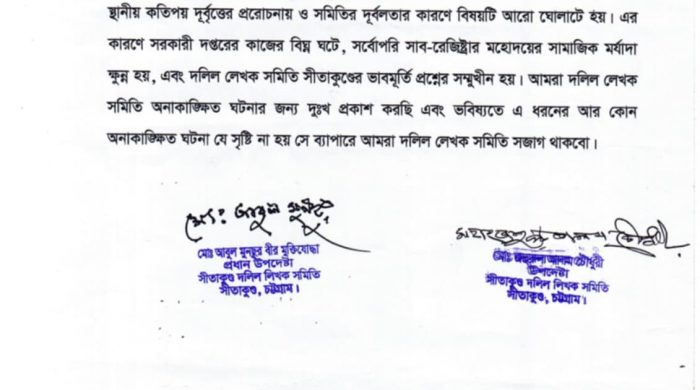 স্থানীয় কতিপয় দূর্বৃত্তের প্ররোচনায় ও সমিতির দূর্বলতার কারণে বিষয়টি আরো ঘোলাটে হয়। এর
কারণে সরকারী দপ্তরের কাজের বিঘ্ন ঘটে, সর্বোপরি সাব-রেজিষ্ট্রার মহোদয়ের সামাজিক মর্যাদা
ক্ষুন্ন হয়, এবং দলিল লেখক সমিতি সীতাকুণ্ডের ভাবমূর্তি প্রশ্নের সম্মুখীন হয়। আমরা দলিল লেখক
সমিতি অনাকাঙ্ক্ষিত ঘটনার জন্য দুঃখ প্রকাশ করছি এবং ভবিষ্যতে এ ধরনের আর কোন
অনাকাঙ্ক্ষিত ঘটনা যে সৃষ্টি না হয় সে ব্যাপারে আমরা দলিল লেখক সমিতি সজাগ থাকবো।
মোঃ আবুল মুনছুর বীর মুক্তিযোদ্ধা
প্রধান উপদেষ্টা
সীতাকুণ্ড দলিল লিখক সমিতি
সীতাকুণ্ড, চট্টগ্রাম।
মোঃ আলম চৌধুরী
উপদেষ্টা
সীতাকুণ্ড দলিল লিখক সমিতি
সীতাকুণ্ড, চট্টগ্রাম।